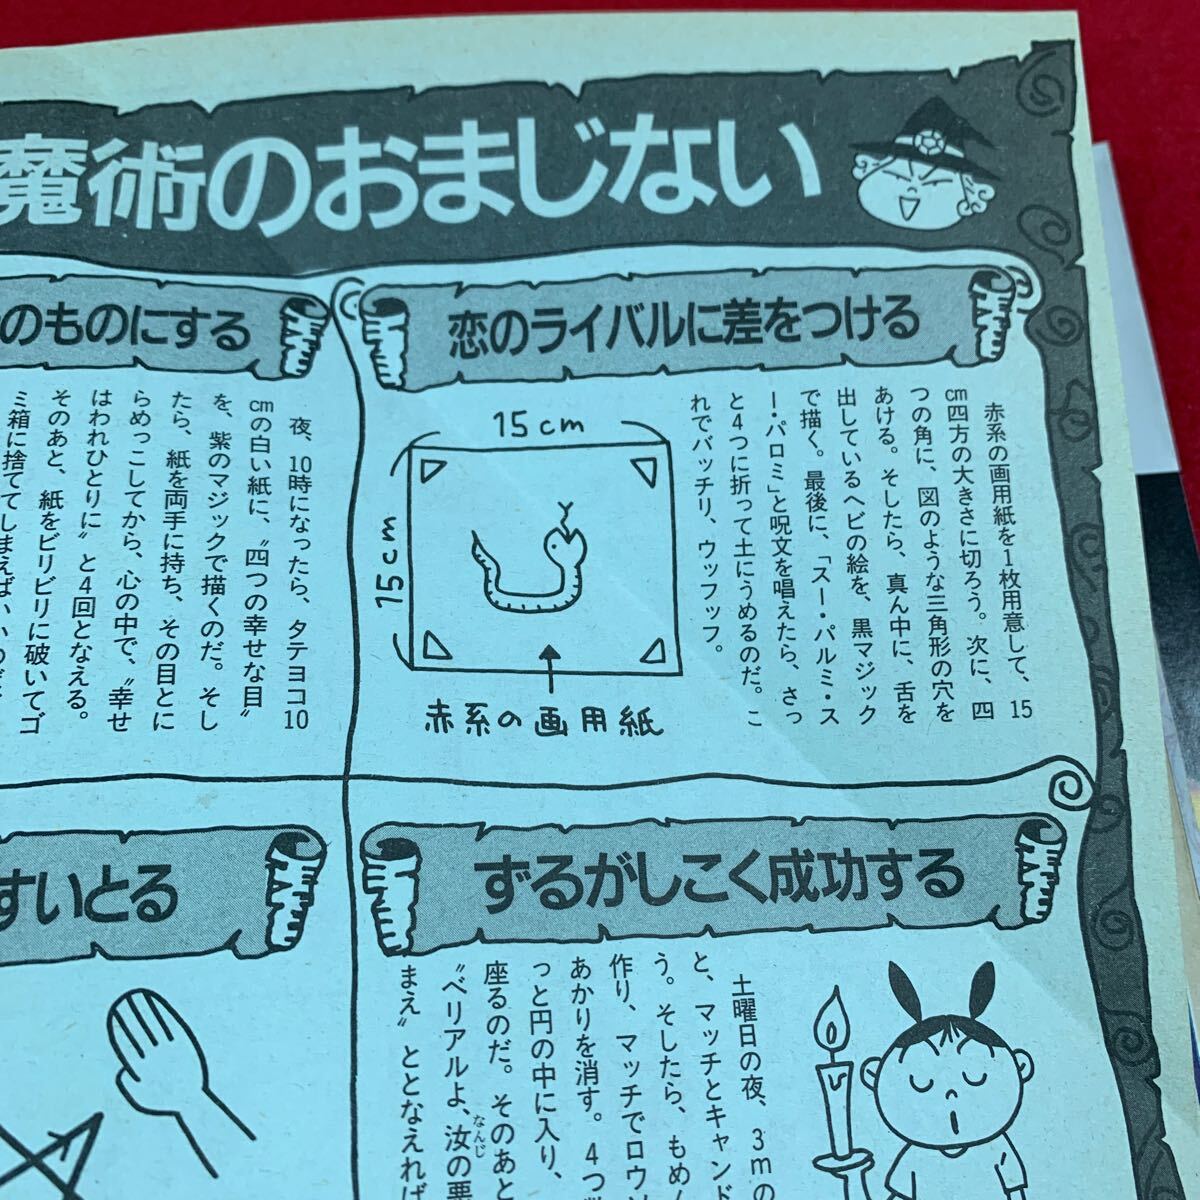 魔術のおまじない
恋のライバルに差をつける
赤系の画用紙を1枚用意して、15
cm四方の大きさに切ろう。次に、四
つの角に、図のような三角形の穴を
あける。そしたら、真ん中に、舌を
出しているヘビの絵を、黒マジック
で描く。最後に、「スー・パルミ・ス
ー・パロミ」と呪文を唱えたら、さっ
と4つに折って土にうめるのだ。こ
れでバッチリ、ウッフッフ。
15cm
15cm
赤系の画用紙
のものにする
夜、10時になったら、タテヨコ10
cmの白い紙に、〝四つの幸せな目〟
を、紫のマジックで描くのだ。そし
たら、紙を両手に持ち、その目とに
らめっこしてから、心の中で、〝幸せ
はわれひとりに〟と4回となえる。
そのあと、紙をビリビリに破いてゴ
ミ箱に捨ててしまえばい
ずるがしこく成功する
土曜日の夜、3mの
と、マッチとキャンド
う。そしたら、もめん
作り、マッチでロウ
あかりを消す。4つ
っと円の中に入り、
座るのだ。そのあと
〝ベリアルよ、汝の悪
なんじ
まえ〟ととなえれば
すいとる